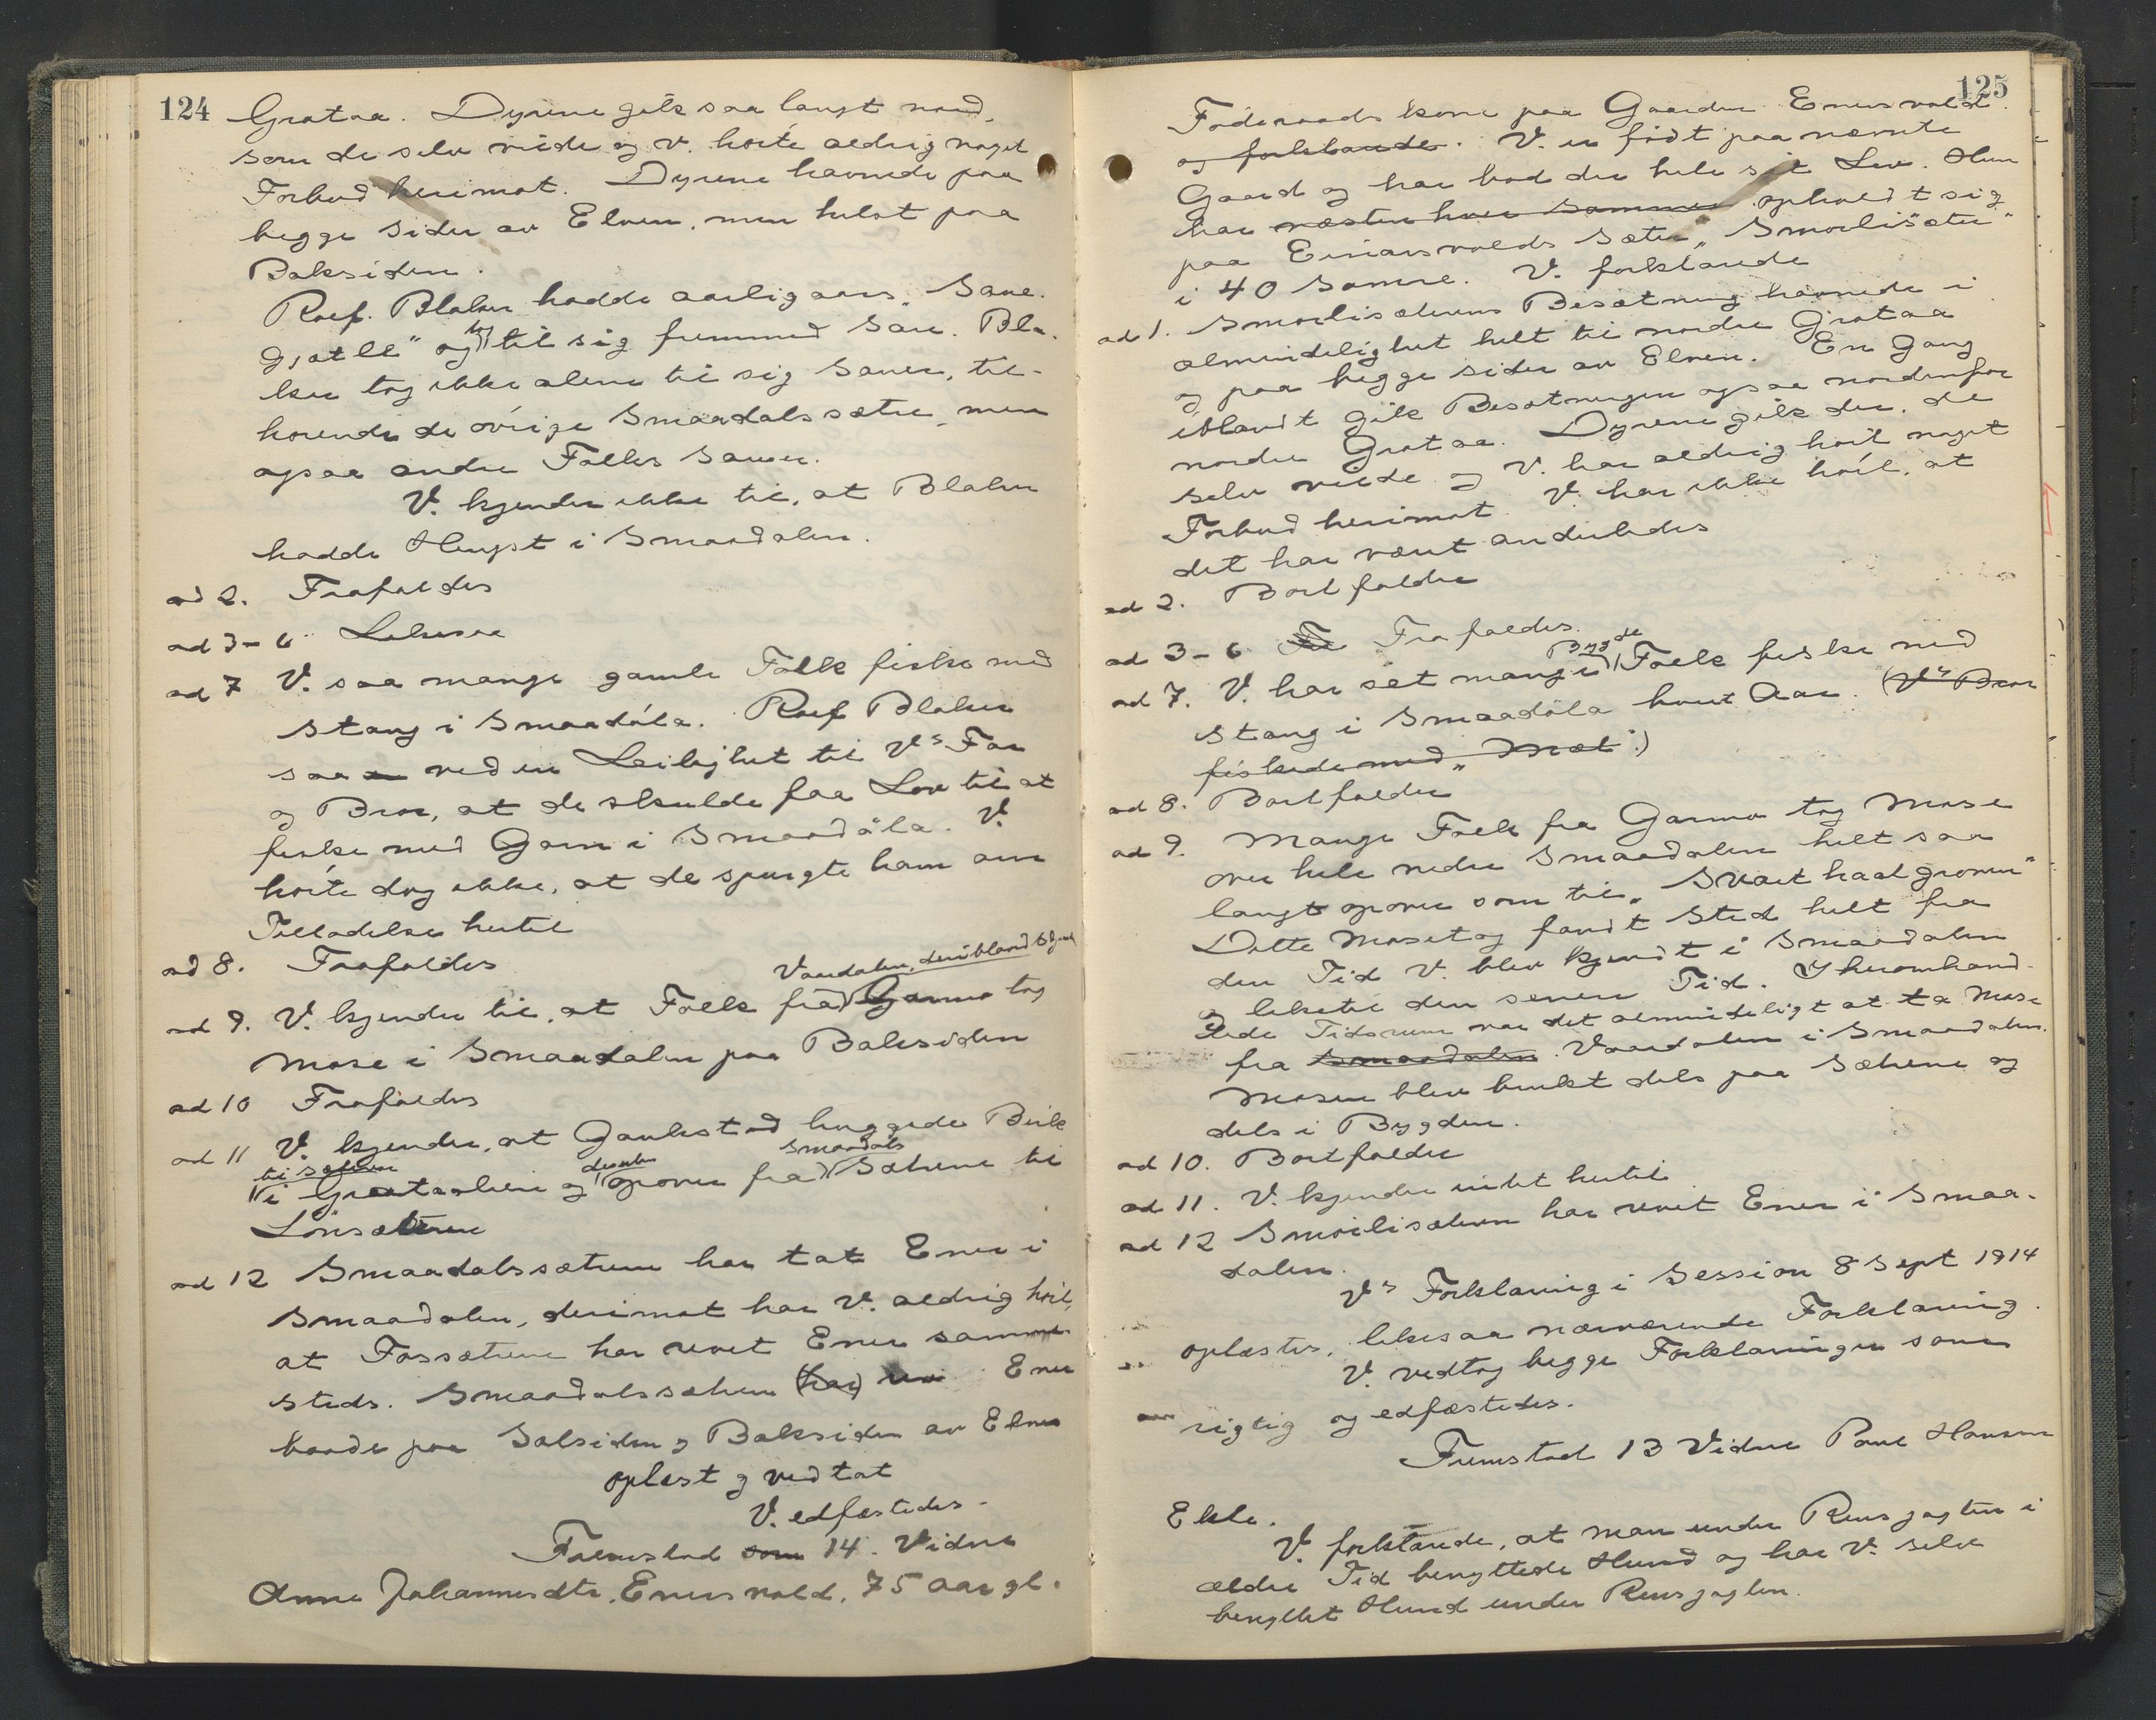 124
Grotaa. Dyrene gik saa langt nord,
som de selv vilde og V. hørte aldrig noget
Forbud herimot. Dyrene havnede paa
begge Sider av Elven, men helst paa
Baksiden.
Rolf Blaker hadde aarligaars "Saue-
gjætle" og tog til sig fremmed Sau. Bla-
ker tog ikke alene til sig Sauer, til-
hørende de øvrige Smaadalssætre, men
ogsaa andre Folks Sauer.
V. kjender ikke til, at Blaker
hadde Hingst i Smaadalen.
ad 2. Frafaldes
ad 3-6 Likesaa
ad 7 V. saa mange gamle Folk fiske med
Stang i Smaadøla. Rolf Blaker
saa ved en Leilighet til V's Far
og Bror, at de skulde faa Lov til at
fiske med Garn i Smaadøla. V.
hørte dog ikke, at de spurgte ham om
Tilladelse hertil
ad 8. Frafaldes
Vaardalen, deriblandt
ad 9. V. kjender til, at Folk fra Garmo tog
Mose i Smaadalen paa Baksiden
ad 10 Frafaldes
ad 11 V. kjender, at Gaukstad huggede Birk
til sæteren desuten Smaadals
i Grotaalien og opover fra Sætrene til
Lonsætrene
ad 12 Smaadalssætrene har tat Ener i
Smaadalen, derimot har V. aldrig hørt,
at Fossætrene har revet Ener samme-
steds. Smaadalssætren (har) rev Ener
baade paa Solsiden og Baksiden av Elven
oplæst og vedtat
V. edfæstedes.
Fremstod som 14. Vidne
Anne Johannesdtr. Enersvold, 75 Aar gl.
125
Føderaadskone paa Gaarden Enersvold.
og forklarede. V. er født paa nævnte
Gaard og har bod der hele sit Liv. Hun
har næsten hver Sommer opholdt sig
paa Einarsvolds Sæter "Smørlisæter"
i 40 Somre. V. forklarede
ad 1. Smørlisæterens Besætning havnede i
almindelighet helt til nordre Grotaa
og paa begge Sider av Elven. En Gang
iblandt gik Besætningen ogsaa nordenfor
nordre Grotaa. Dyrene gik der, de
selv vilde og V. har aldrig hørt noget
Forbud herimot. V. har ikke hørt, at
det har været anderledes
ad 2. Bortfalder
ad 3-6 Fr Frafaldes
Bygde
ad 7. V. har set mange Folk fiske med
Stang i Smaadøla hvert Aar. (V's Bror
fiskede med "Mæt".)
ad 8. Bortfalder
ad 9. Mange Folk fra Garmo tog Mose
over hele nedre Smaadalen helt saa
langt opover som til "Svarthaalgroven"
Dette Mosetag fandt Sted helt fra
den Tid V. blev kjendt i Smaadalen
og liketil den senere Tid. I heromhand-
lede Tidsrum var det almindeligt at ta Mose
fra Smaadalen Vaardalen i Smaadalen.
Mosen blev brukt dels paa Sætrene og
dels i Bygden.
ad 10. Bortfalder
ad 11. V. kjender intet hertil
ad 12 Smørlisæteren har revet Ener i Smaa-
dalen.
V's Forklaring i Session 8 Sept 1914
oplæstes, likesaa nærværende Forklaring.
V. vedtog begge Forklaringer som
rigtig og edfæstedes.
Fremstod 13 Vidne Poul Hansen
Ekle.
V. forklarede, at man under Rensjagten i
ældre Tid benyttede Hund og har V. selv
benyttet Hund under Rensjagten.